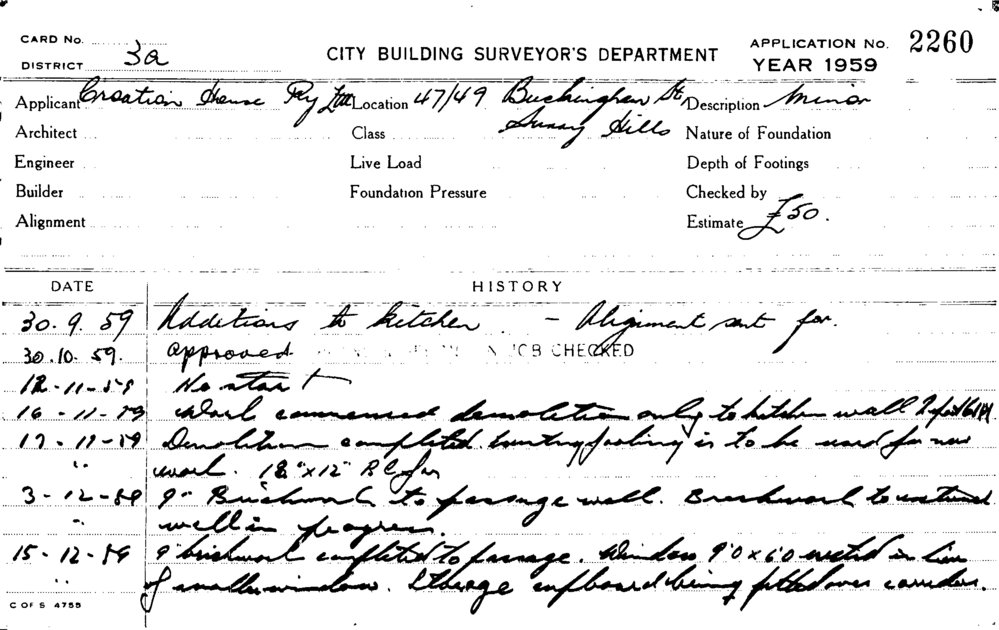 CARD No.
DISTRICT 3a
CITY BUILDING SURVEYOR'S DEPARTMENT
APPLICATION No. 2260
YEAR 1959
Applicant Croatian House Pty Ltd Location 47/49 Buckingham St, Description Minor
Surry Hills
Architect Class Nature of Foundation
Engineer Live Load Depth of Footings
Builder Foundation Pressure Checked by
Alignment Estimate £50.
DATE HISTORY
30.9.59 Additions to kitchen. - Alignment sent for.
30.10.59. approved JOB CHECKED
12-11-59 No start
16-11-59 Work commenced demolition only to kitchen wall
17-11-59 Demolition completed footing is to be used for new
" work. 18"x12" R C
3-12-59 9" Brickwork to passage wall. Brickwork to
" wall in progress.
15-12-59 9" brickwork completed to passage. Window 9'0 x 6'0 in lieu
" of smaller window. Storage cupboard being fitted over corridor.
C OF S 4755